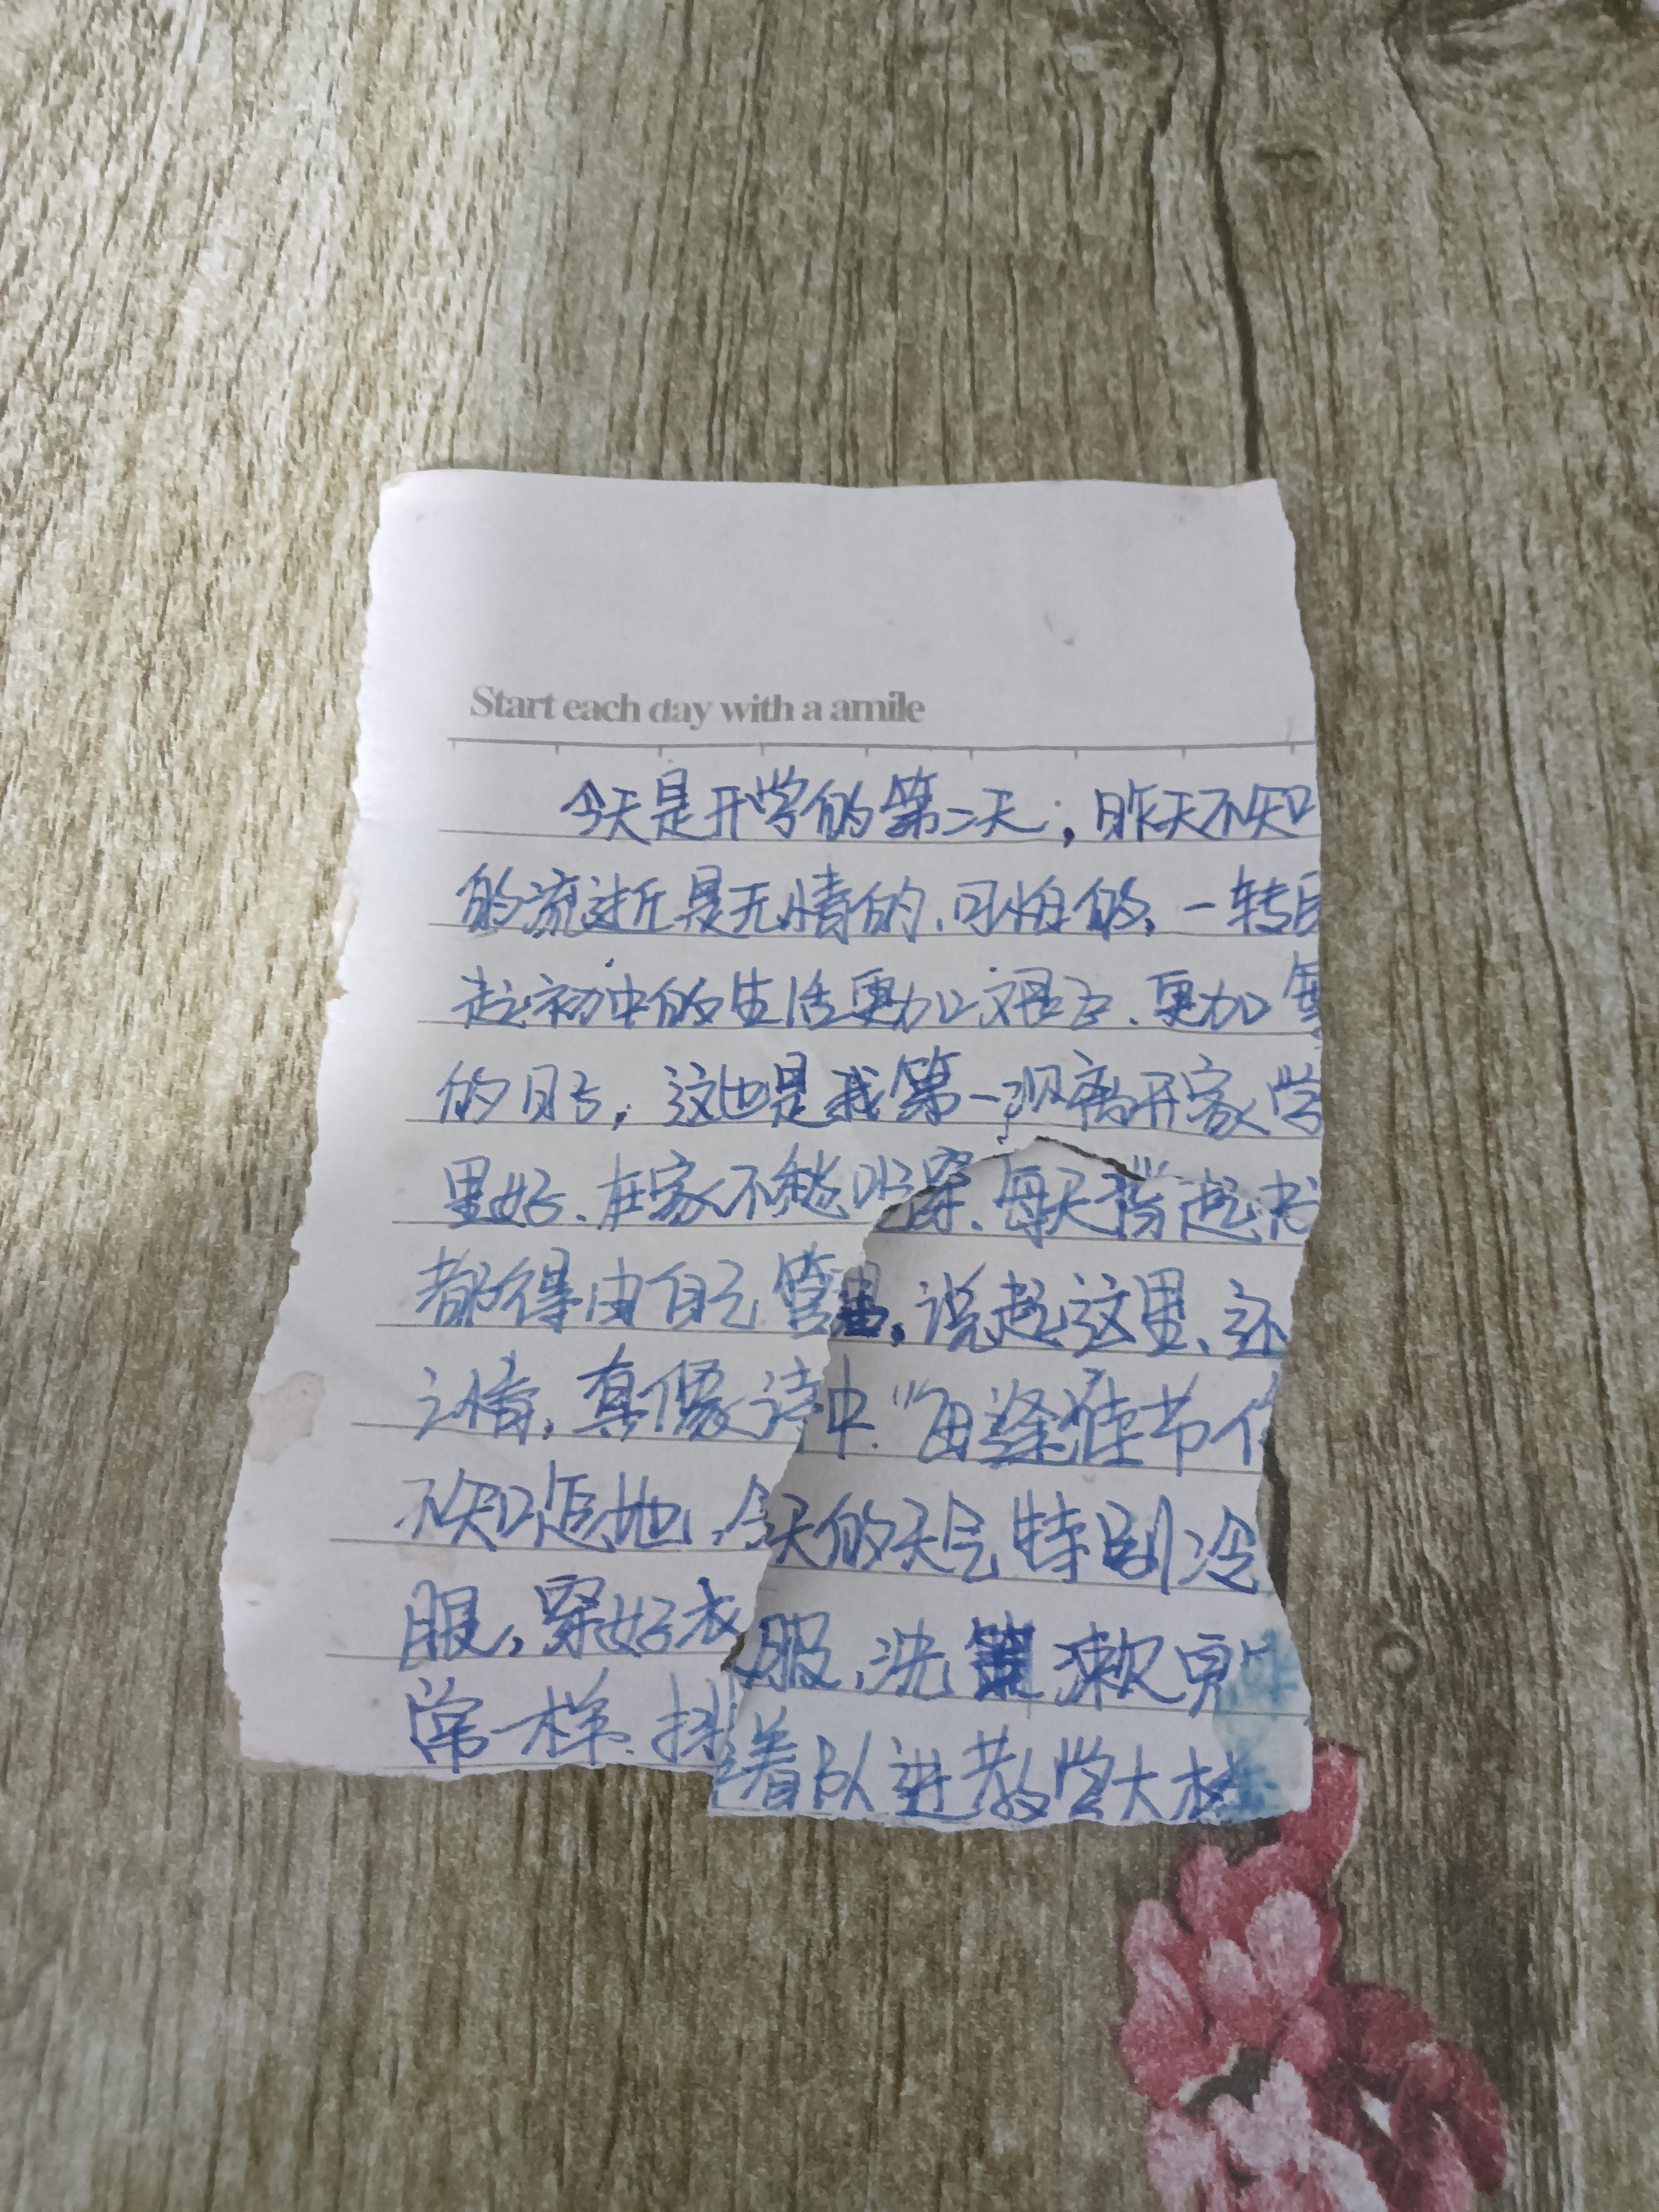 Start each day with a amile
今天是开学的第二天，昨天不知
的流逝是无情的、可悔的，一转
起初中的生活更加艰苦、更加
的日子，这也是我第一次离开家、学
里好、在家不愁吃穿、每天背起书
都得由自己管理，说起这里、还
之情，真像诗中“每逢佳节
不知怎地，今天的天气特别冷
服，穿好衣服，洗漱
常一样、排着队进教学大楼